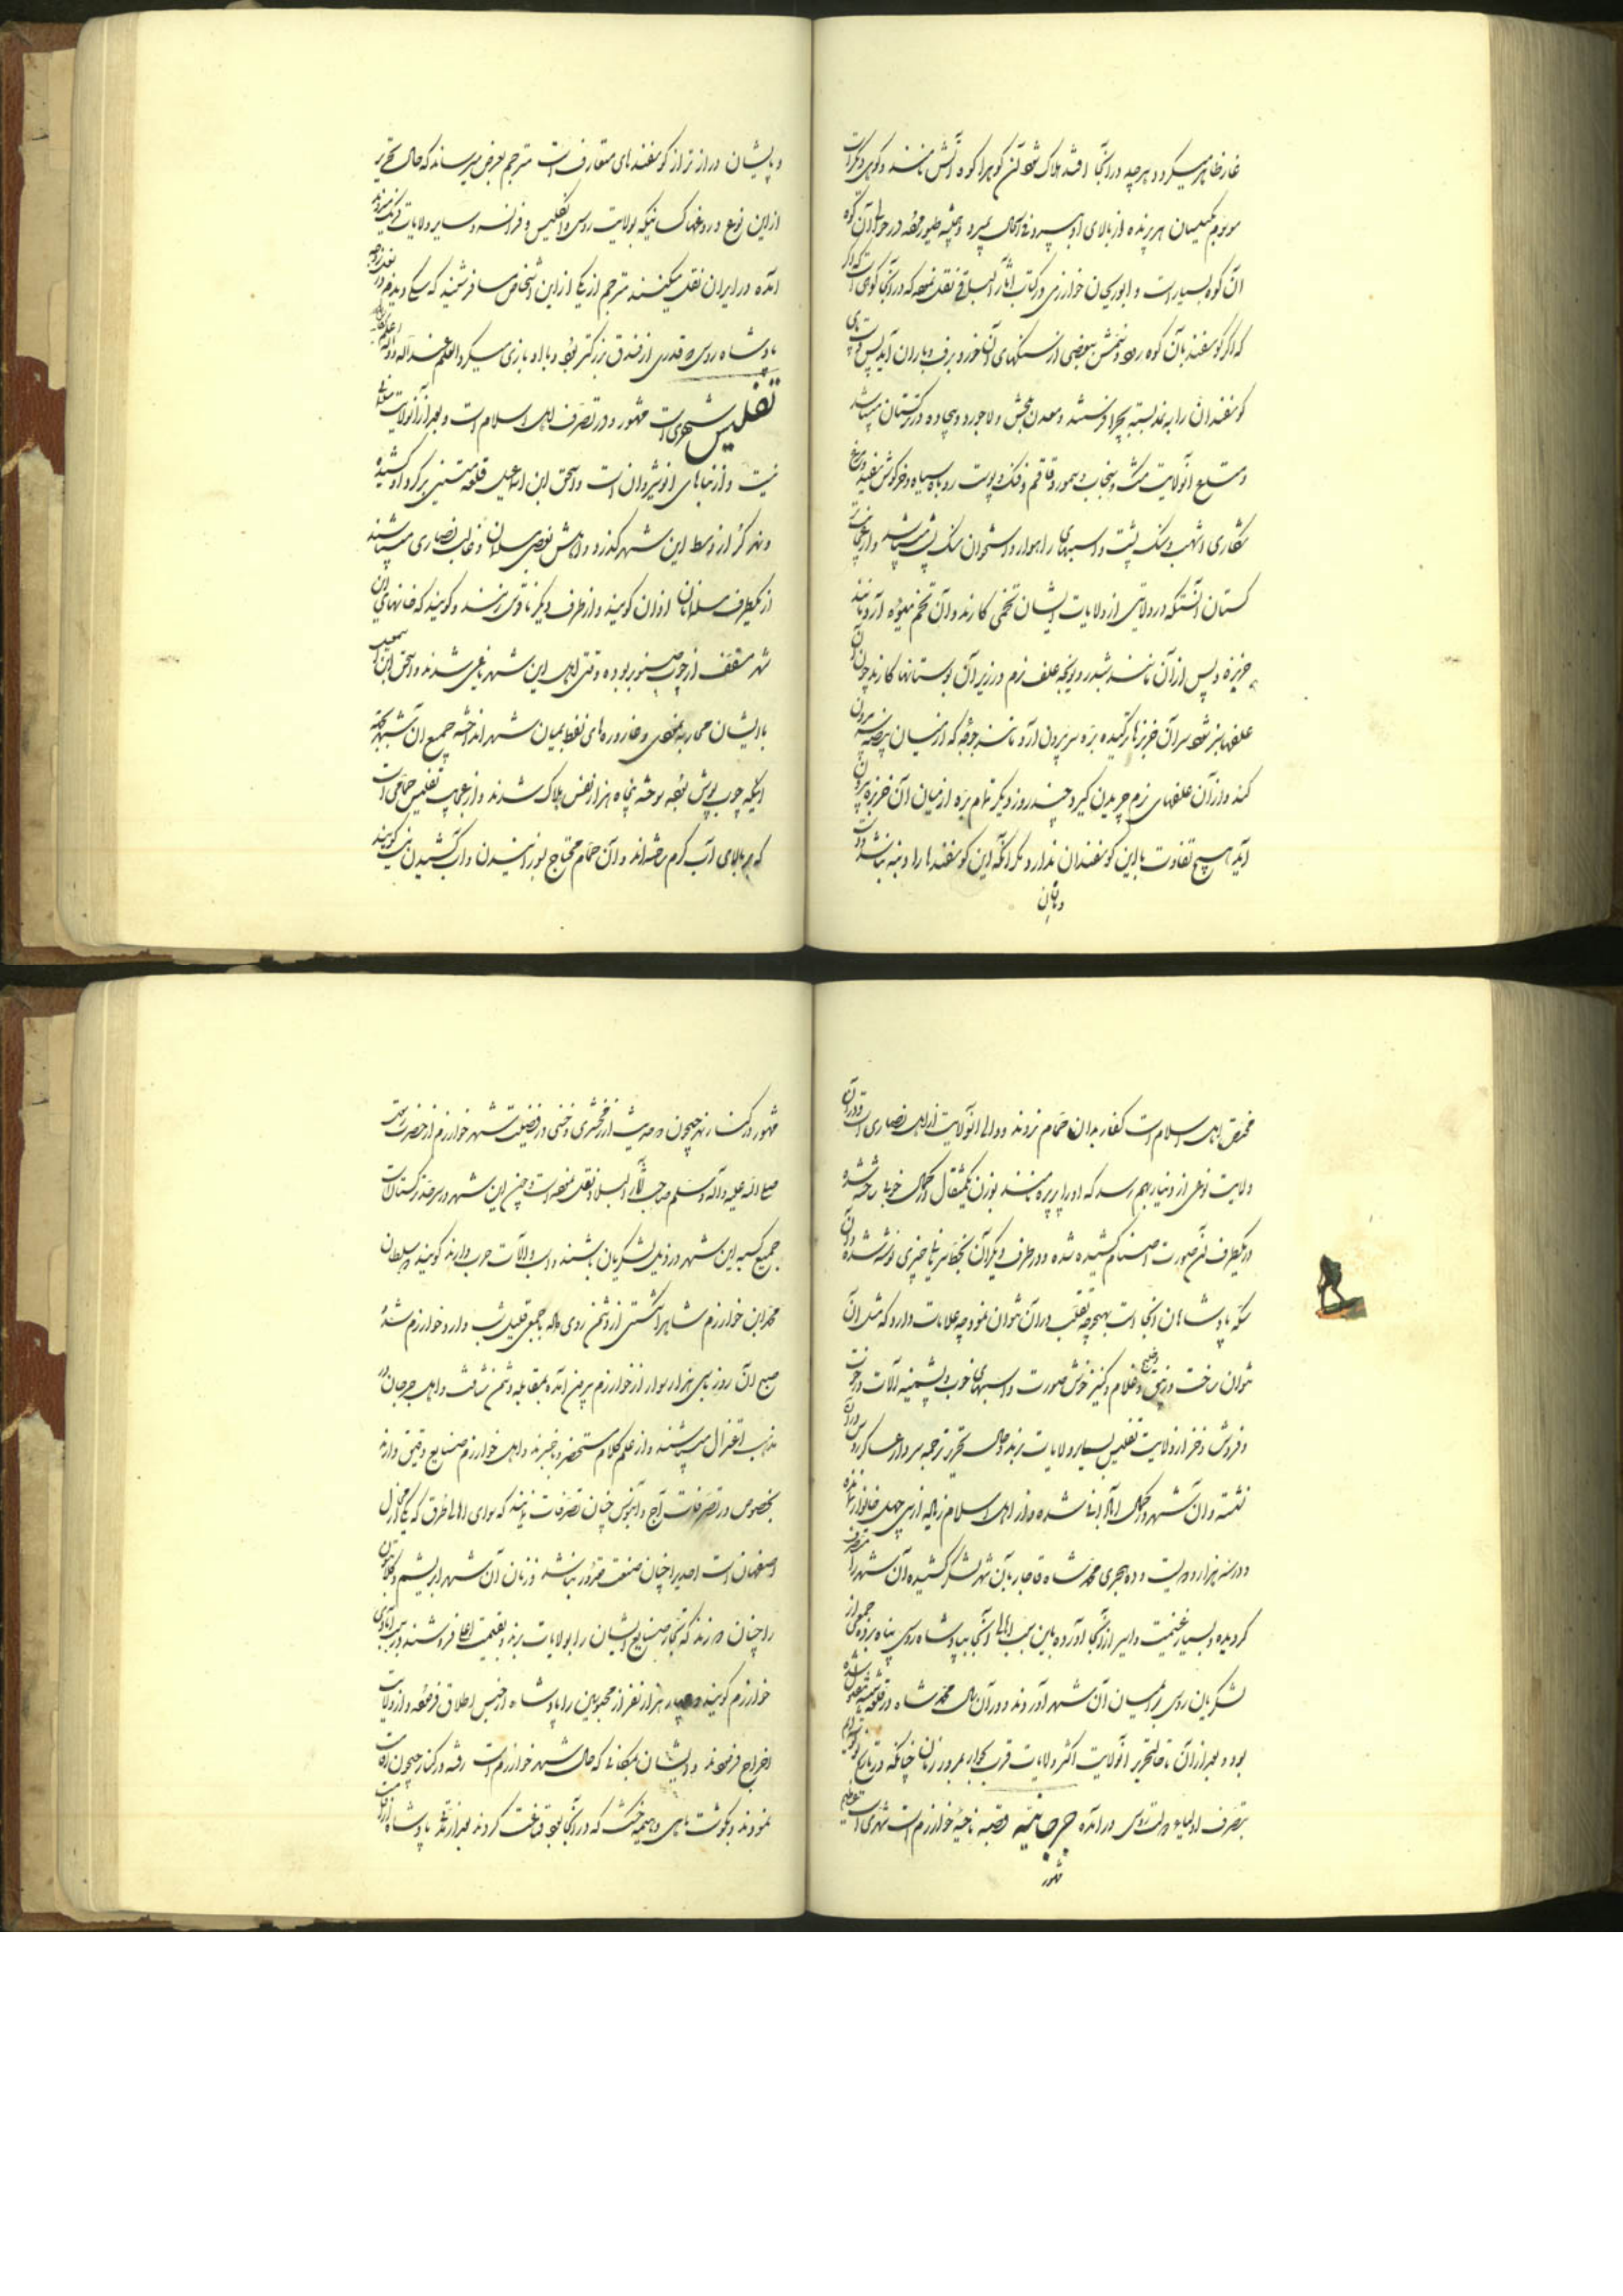 غار ظاهر میگردد و هر چه در آنجا افتد هلاک شود آن کوه را کوه آتش نامند و کوهی دیگر است
هر پرنده از بالای او بپرد فی الحال بمیرد و همیشه طیور مرده در حوالی آن کوه
آن کوه بسیار است و ابوریحان خوارزمی در کتاب آثار الباقی نقل نموده که در آنجا کوهی است که
که اگر گوسفند بآن کوه رود و سمش ببعضی از سنگهای آن خورد برف و باران آید پس دست و پای
گوسفندان را به نمد بسته بچرا فرستند و معدن بخش و لاجورد و بیجاده در ترکستان میباشد
و متاع آنولایت مشک و سنجاب و سمور و قاقم و فنک و پوست روباه سیاه و خرگوش سفید و مرغ
شکاری اشهب و سنگ یشب و اسبهای راهوار و استخوان میباشد و از عجایب
آنستکه در ولایتی از ولایات ایشان تخمی کارند و آن تخم میوه آرد مانند
خربزه و پس از آن مانند شبدر و یونجه علف نرم در زیر آن بوستانها کارند چون آن
علفها سبز شود سر آن خربزها ترکیده بره سر بیرون آرد مانند جوجه که از میان بیضه سر بیرون
کند و از آن علفهای نرم چریدن گیرد چند روز دیگر تمام بره از میان آن خربزه بیرون
آید هیچ تفاوت با این گوسفندان ندارد مگر آنکه این گوسفندها را دنبه نباشد و دست
و پایشان دراز تر از گوسفندهای متعارف است مترجم بعرض میرساند که حال تحریر
از این نوع دروغها کسانیکه بولایت روس و انگلیس و فرانسه و سایر ولایات فرنگ میروند
آمده در ایران نقل میکنند مترجم از یکی از این اشخاص مسافر شنید که سگی دیدم در
پادشاه روس قدری از فندق بزرگتر بود و با او بازی میکرد العلم عند الله
تفلیس شهری است مشهور و در تصرف اهل اسلام است و بعد از آن ولایت
نیست و از بناهای انوشیروان است و اسحق ابن اسماعیل قلعه متینی بر گرد او کشیده
و نهر کر از وسط این شهر گذرد و اهلش بعضی مسلمانان و غالب نصاری میباشند
از یکطرف مسلمانان اذان گویند و از طرف دیگر ناقوس زنند و گویند که خانهای آن
شهر مسقف از چوب صنوبر بوده وقتی اهل این شهر یاغی شدند و اسحق ابن اسمعیل
با ایشان محاربه نموده و قاروره های نفط بمیان شهر انداخته جمیع آن شهر بجهة
اینکه چوب پوش بوده سوخته پنجاه هزار نفس هلاک شدند و از عجایب تفلیس حمامی است
که بر بالای آب گرم ساخته اند و آن حمام محتاج بسوزانیدن و آب کشیدن نیست گویند
مختص اهل اسلام است کفار بدان حمام نروند و والی آنولایت از اهل نصاری است و در آن
ولایت نوعی از دینار بهم رسد که او را پرپره نامند بوزن یکمثقال در کمال خوبی ساخته شده
در یکطرف آن صورت اصنام کشیده شده و در طرف دیگر آن بخط سریانی چیزی نوشته شده و آن
سکه پادشاهان آنجا است بهیچوجه تقلب در آن نتوان نمود چه علامات دارد که مثل آن
نتوان ساخت و زیبق و خلنج و غلام و کنیز خوش صورت و اسبهای خوب و پشمینه آلات
و فروش و خز از ولایت تفلیس بسایر ولایات برند و حال تحریر ترجمه سردار عساکر روس در آن
نشسته و آن شهر در کمال آبادانی شده و از اهل اسلام زیاده از سی چهل خانوار نمانده
و در سنه هزار و دویست و ده هجری محمد شاه قاجار بآن شهر لشکر کشیده آن شهر را متصرف
گردیده و بسیار غنیمت و اسیر از آنجا آورده باین سبب اهالی آنجا بپادشاه روس پناه برده جمعی از
لشکریان روس بمیان آن شهر آوردند و در آن سال محمد شاه در قلعه شیشه مقتول شده
بود و بعد از آن تا حال تحریر آنولایت اکثر ولایات قرب بمرور زمان چنانکه در تاریخ
بتصرف اولیای دولت روس در آمده جرجانیه قصبه ناحیه خوارزم است شهری است عظیم
مشهور
مشهور در کنار نهر جیحون و حدیث از زمخشری در فضیلت شهر خوارزم از حضرت رسالت
صلی الله علیه و آله و سلم صاحب آثار البلاد نقل نموده است و چون این شهر در سرحد ترکستان است
جمیع کسبه این شهر در ذیل لشکریان باشند و اسب و آلات حرب دارند گویند سلطان
محمد ابن خوارزم شاه را شکستی از دشمن روی داد با جمعی قلیل شب وارد خوارزم شد
صبح آن روز با سی هزار سوار از خوارزم بیرون آمده بمقابله دشمن شتافت و اهل جرجان در
مذهب اعتزال میباشند و از علم کلام مستحضر و باخبرند و اهل خوارزم صنایع دقیق دارند
بخصوص در تصرفات عاج و آبنوس چنان تصرفات نمایند که سوای اهالی طرق که یکی از محال
اصفهان است احدیرا چنان صنعت مقدور نباشد و زنان آن شهر ابریشم
را چنان دوزند که تجار صنایع ایشان را بولایات برند و بقیمت اعلی فروشند و در سبب آبادی
خوارزم گویند چهار هزار نفر از محبوسین را پادشاه از حبس اطلاق فرموده و از ولایت
اخراج فرمودند و ایشان بمکانی که حال شهر خوارزم است رفته در کنار جیحون
نمودند و بگوشت ماهی و هیمه خشک که در آنجا بود قناعت کردند بعد از مدتی پادشاه